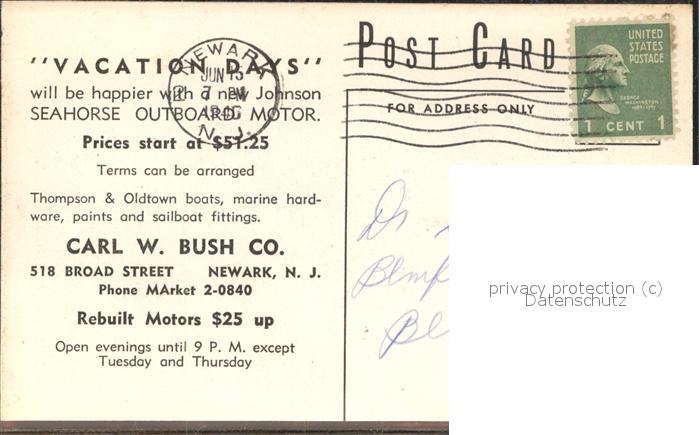 "VACATION DAYS"
will be happier with a new Johnson
SEAHORSE OUTBOARD MOTOR.
Prices start at $51.25
Terms can be arranged
Thompson & Oldtown boats, marine hard-
ware, paints and sailboat fittings.
CARL W. BUSH CO.
518 BROAD STREET NEWARK, N. J.
Phone MArket 2-0840
Rebuilt Motors $25 up
Open evenings until 9 P. M. except
Tuesday and Thursday
NEWARK
JUN 15
7 PM
N. J.
POST CARD
FOR ADDRESS ONLY
UNITED
STATES
POSTAGE
GEORGE
WASHINGTON
1 CENT 1
Dr
Blmf
Bl
privacy protection (c)
Datenschutz